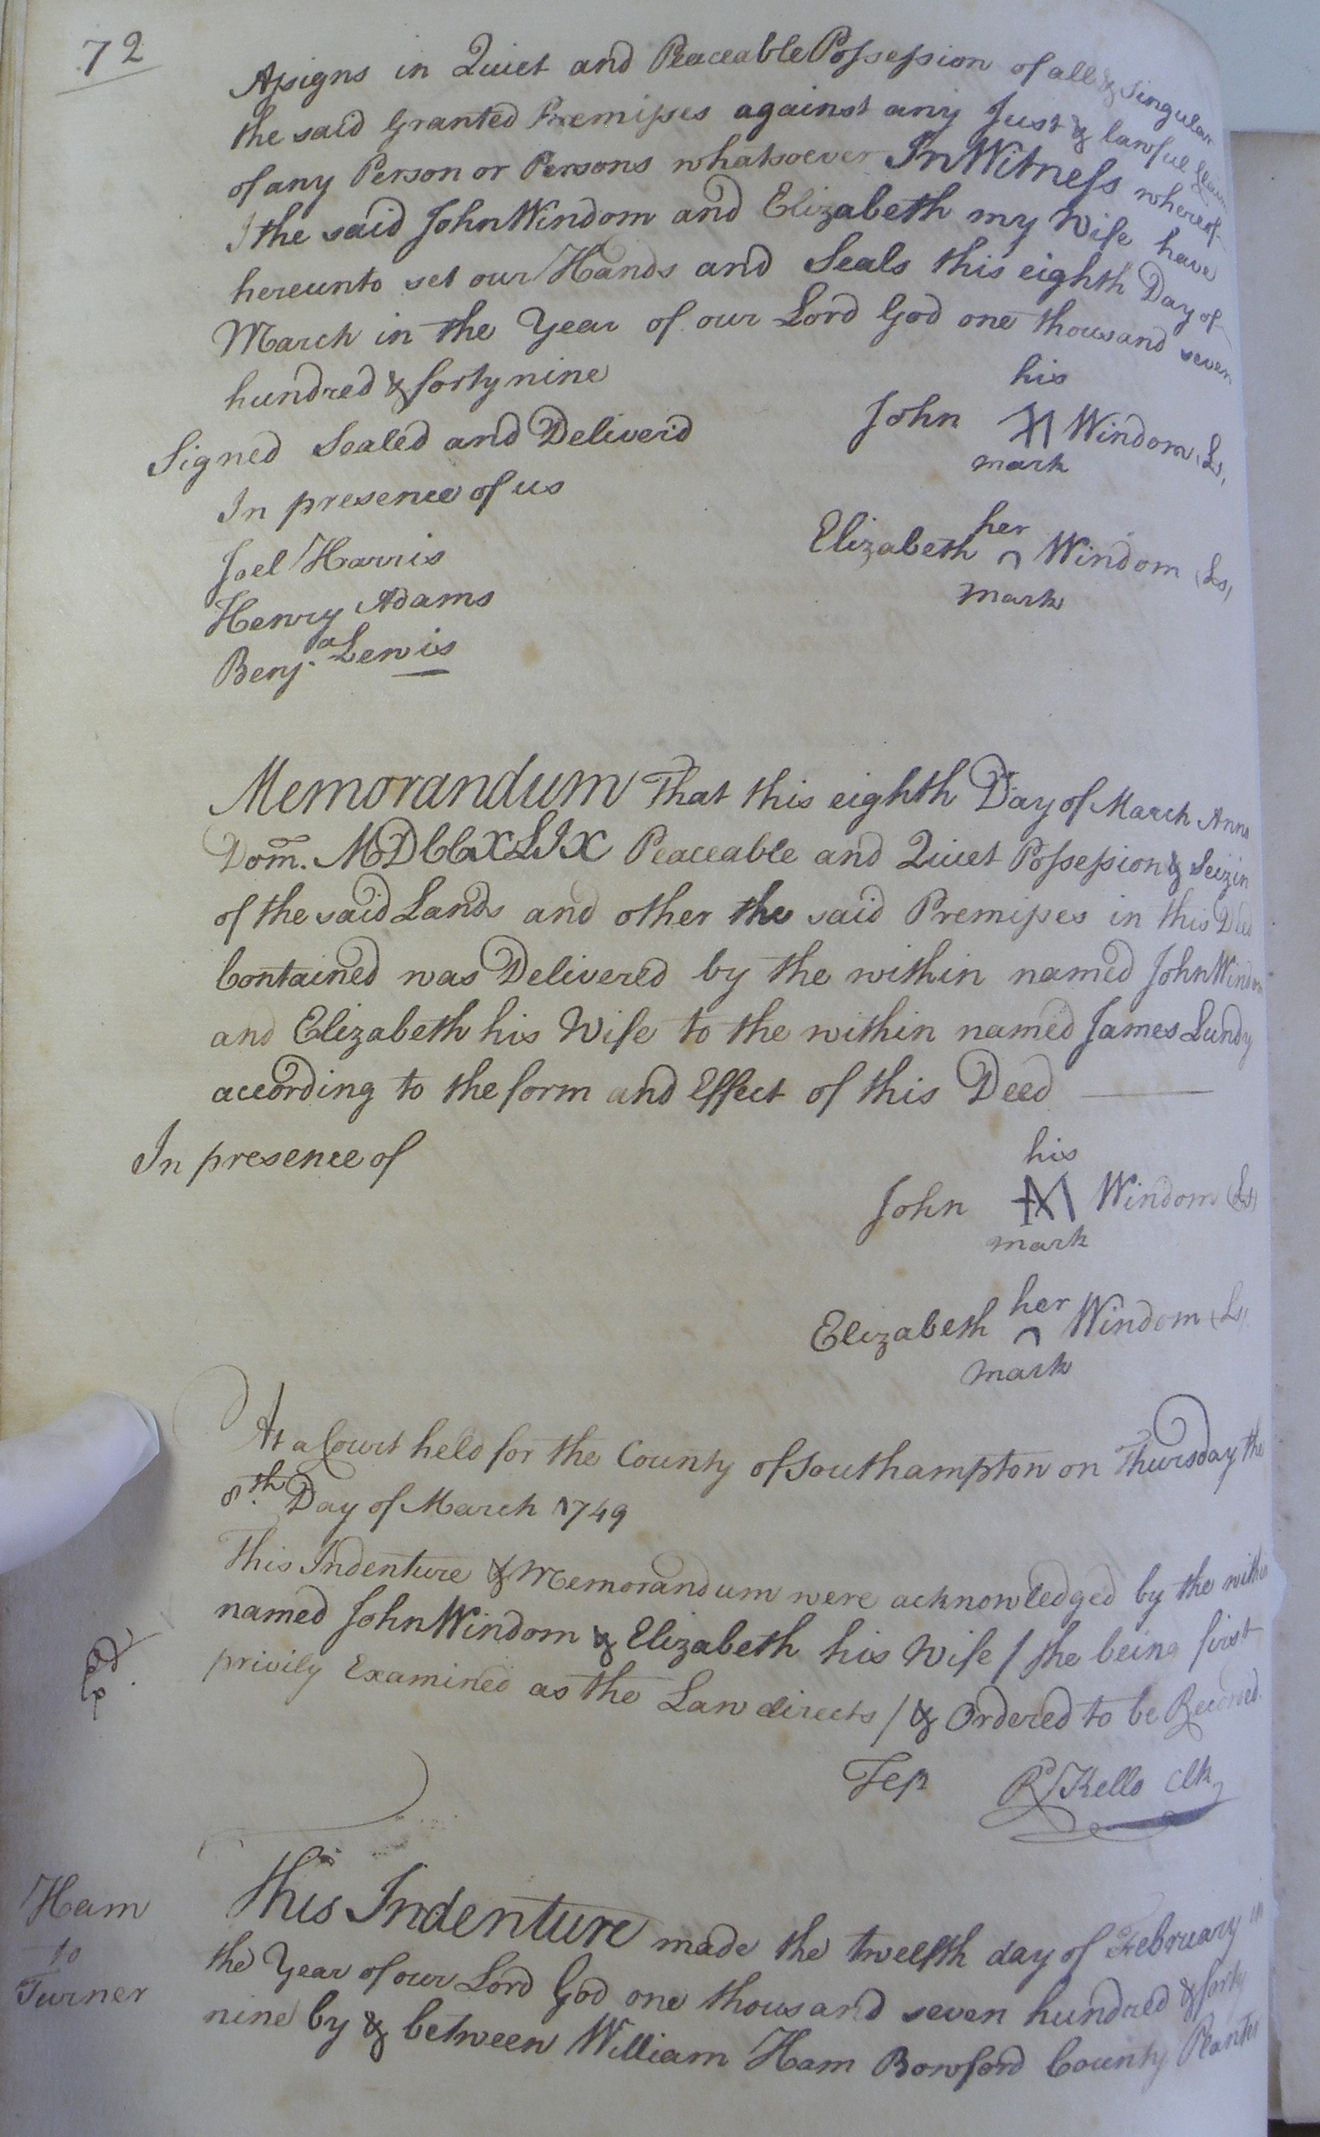 72
Assigns in Quiet and Peaceable Possession of all & Singular
the said Granted Premisses against any Just & lawful Claim
of any Person or Persons whatsoever In Witness whereof
I the said John Windom and Elizabeth my Wife have
hereunto set our Hands and Seals this eighth Day of
March in the Year of our Lord God one thousand seven
hundred & forty nine
his
Signed Sealed and Deliverd
John Windom (Ls)
mark
In presence of us
her
Joel Harris
Elizabeth Windom (Ls)
Henry Adams
mark
Benja. Lewis
Memorandum That this eighth Day of March Anno
Dom. MDCCXLIX Peaceable and Quiet Possession & Seizin
of the said Lands and other the said Premisses in this Deed
Contained was Delivered by the within named John Windom
and Elizabeth his Wife to the within named James Lundy
according to the form and Effect of this Deed
In presence of
his
John Windom (Ls)
mark
her
Elizabeth Windom (Ls)
mark
At a Court held for the County of Southampton on Thursday the
8th. Day of March 1749
This Indenture & Memorandum were acknowledged by the within
named John Windom & Elizabeth his Wife / She being first
privily Examined as the Law directs / & Ordered to be Recorded.
Test Rd Kello Clk
Ham
to
Turner
This Indenture made the twelfth day of February in
the Year of our Lord God one thousand seven hundred & forty
nine by & between William Ham Bowford County Planter